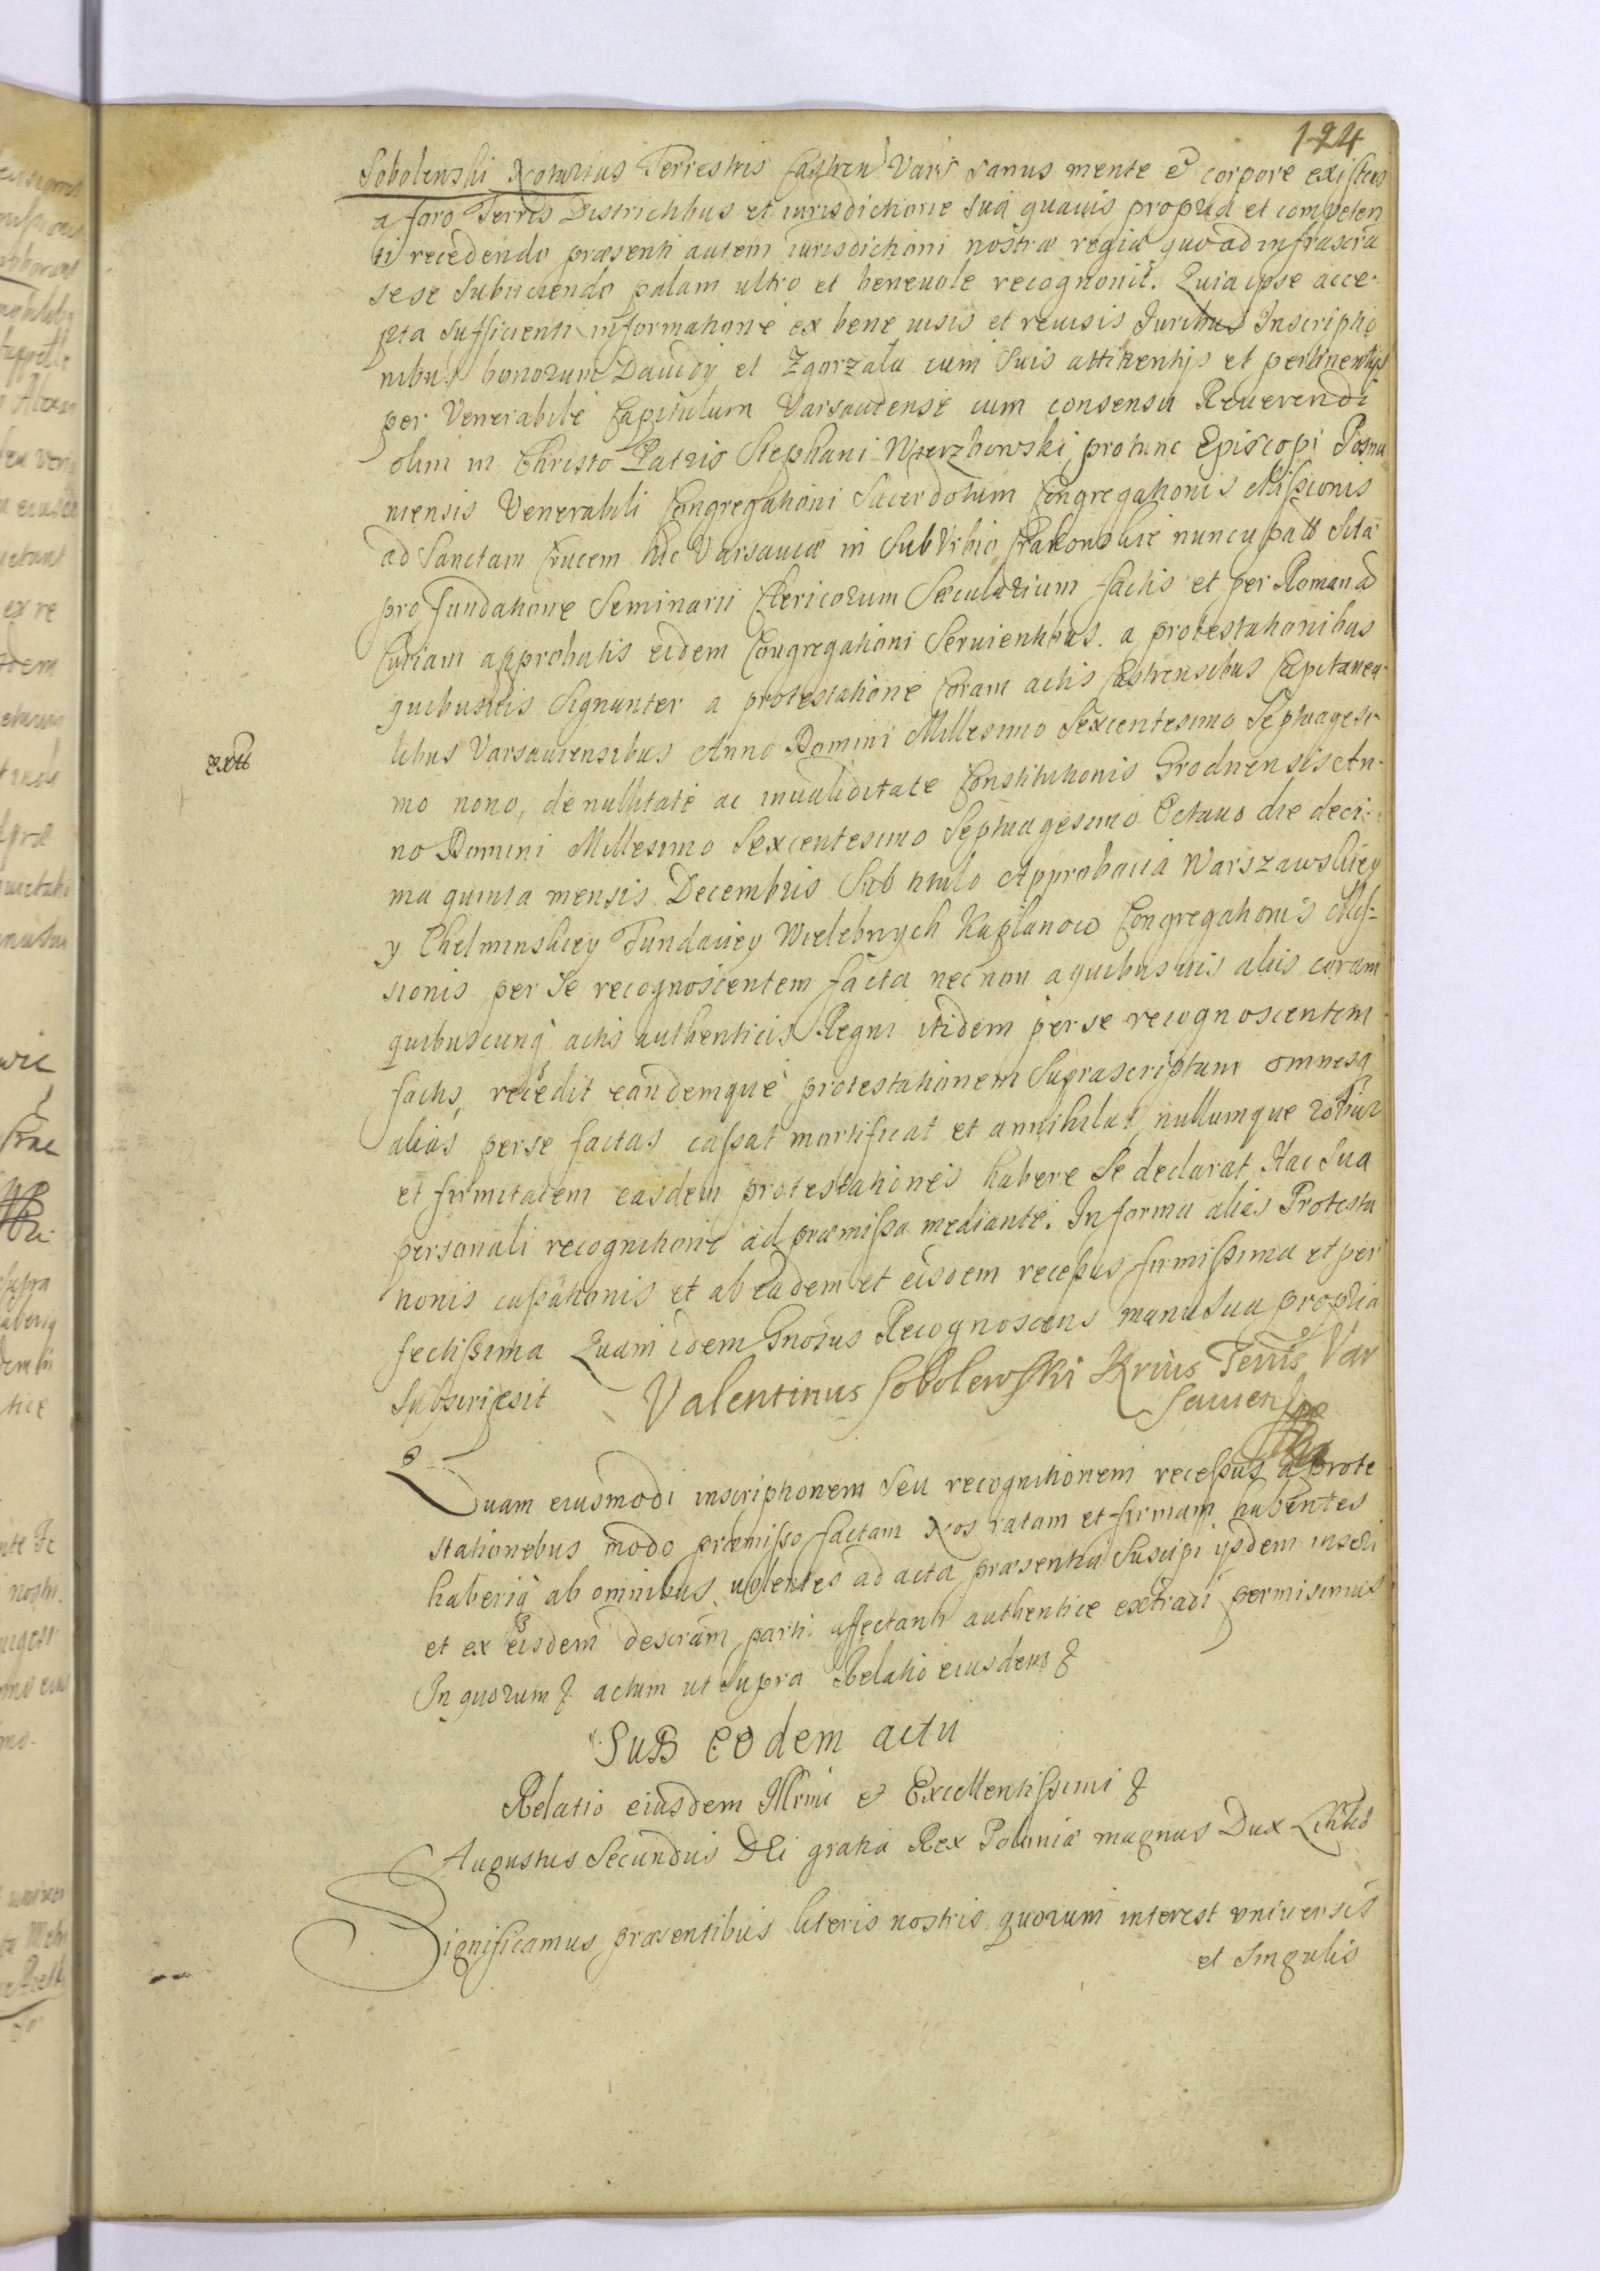 124
Sobolewski Notarius Terrestris Castren Vars Sanus mente et corpore existens
a foro Terris Districtibus et iurisdictione sua quauis propria et competen
ti recedendo præsenti autem iurisdictioni nostræ regiæ quo ad infrascra
sese subiiciendo palam ultro et beneuole recognouit. Quia ipse acce-
pta sufficienti informatione ex bene uisis et reuisis Iuribus Inscriptio
nibus bonorum Dawidy et Zgorzała cum suis attinentijs et pertinentijs
per Venerabile Capitulum Varsauiense cum consensu Reuerendi
olim in Christo Patris Stephani Wierzbowski protunc Episcopi Posna
niensis Venerabili Congregationi Sacerdotum Congregationis Missionis
ad Sanctam Crucem hic Varsauiæ in SubVrbio Krakowskie nuncupatt sita
pro fundatione Seminarii Clericorum Sæcularium factis et per Romanā
Curiam approbatis eidem Congregationi Seruientibus. a protestationibus
quibusuis Signanter a protestatione Coram actis Castrensibus Capitanea-
libus Varsauiensibus Anno Domini Millesimo Sexcentesimo Septuagesi-
mo nono, de nullitate ac inualiditate Constitutionis Grodnensis An-
no Domini Millesimo Sexcentesimo Septuagesimo Octauo die deci-
ma quinta mensis Decembris Sub titulo Approbacia Warszawskiey
y Chelminskiey Fundaciey Wielebnych Kapłanow Congregationis Mis-
sionis per se recognoscentem facta nec non a quibusuis aliis coram
quibuscunq actis authenticis Regni itidem per se recognoscentem
factis, recedit eandemque protestationem Suprascriptam omnesq
alias per se factas cassat mortificat et annihilat nullumque robur
et firmitatem easdem protestationes habere se declarat. Hac Sua
personali recognitione ad præmissa mediante. In forma alias Protesta
tionis cassationis et ab eadem et eisdem recessus firmissima et per
fectissima Quam idem Gnosus Recognoscens manu sua propria
Subscripsit Valentinus Sobolewski Nrius Terris Var
sauiensis
Quam eiusmodi inscriptionem seu recognitionem recessus a prote
stationibus modo præmisso factam Nos ratam et firmam habentes
haberiq ab omnibus uolentes ad acta præsentia Suscipi ijsdem inseri
et ex eisdem descram parti affectanti authentice extradi permisimus
In quorum actum ut supra Relatio eiusdem
Sub eodem actu
Relatio eiusdem Illrmi et Excellentissimi
Augustus Secundus DEi gratia Rex Poloniæ magnus Dux Lithus
Significamus præsentibus literis nostris quorum interest vniuersis
et singulis